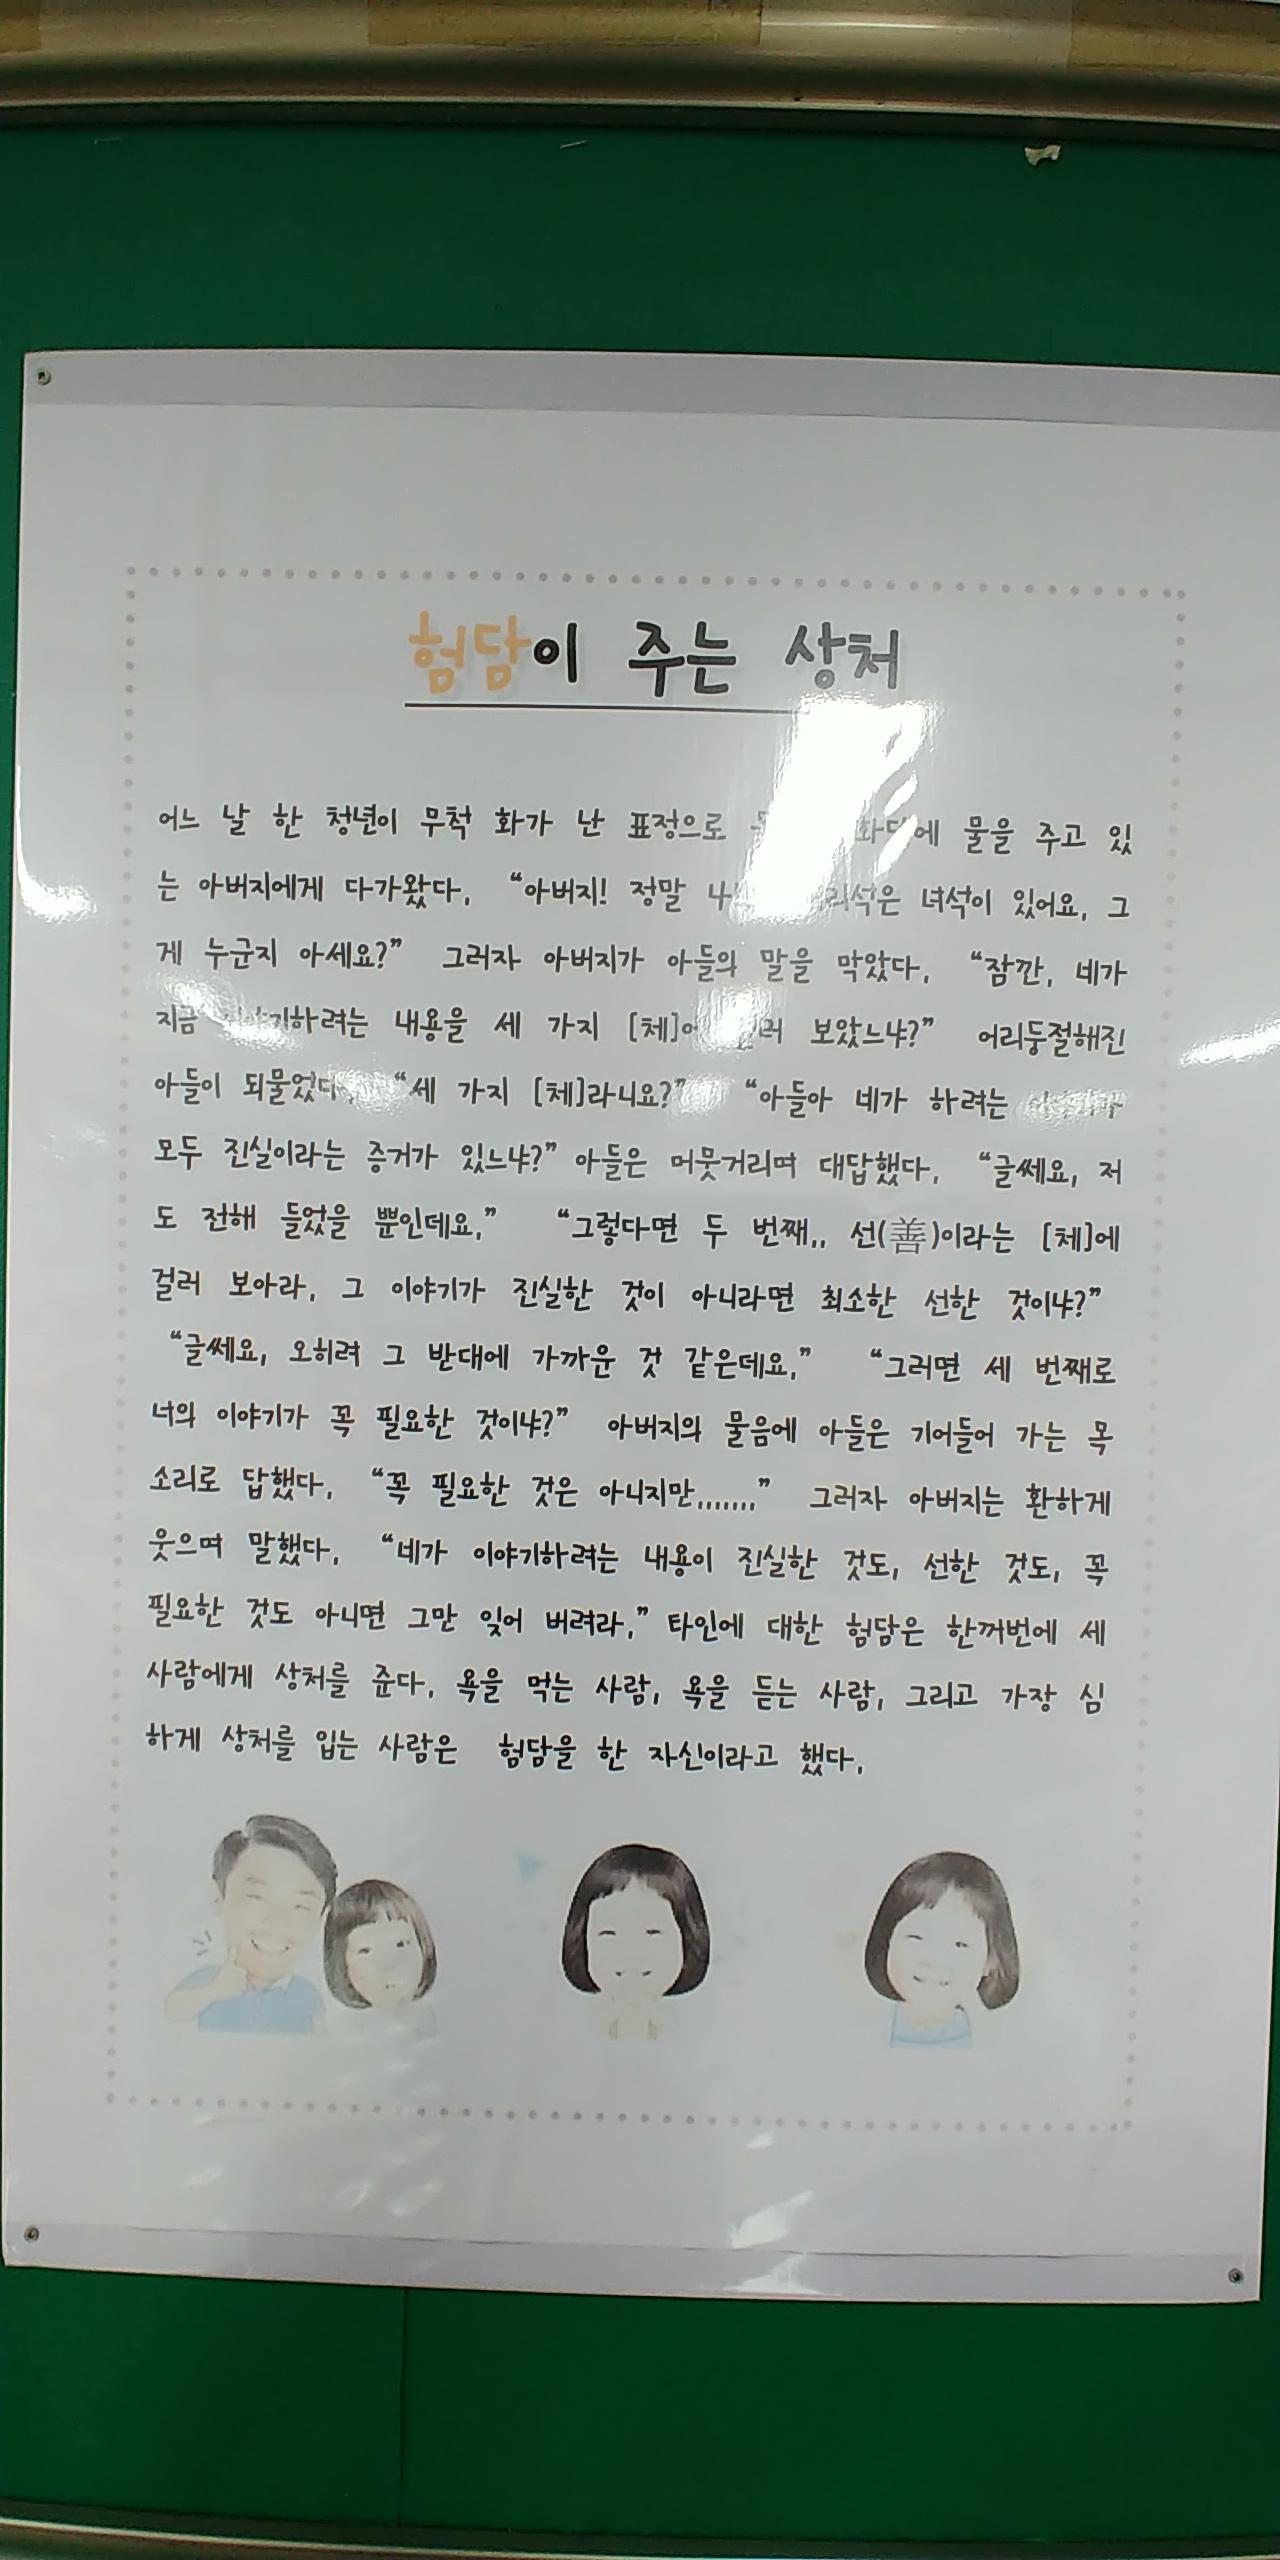 험담이 주는 상처
어느 날 한 청년이 무척 화가 난 표정으로 물을 주고 있
는 아버지에게 다가왔다. “아버지! 정말 녀석이 있어요. 그
게 누군지 아세요?” 그러자 아버지가 아들의 말을 막았다. “잠깐. 네가
지금 내용을 세 가지 보았느냐?” 어리둥절해진
아들이 되물었다. “세 가지 [체]라니요?” “아들아 네가 하려는
모두 진실이라는 증거가 있느냐?” 아들은 머뭇거리며 대답했다. “글쎄요, 저
도 전해 들었을 뿐인데요.” “그렇다면 두 번째.. 선(善)이라는 [체]에
걸러 보아라. 그 이야기가 진실한 것이 아니라면 최소한 선한 것이냐?”
“글쎄요, 오히려 그 반대에 가까운 것 같은데요.” “그러면 세 번째로
너의 이야기가 꼭 필요한 것이냐?” 아버지의 물음에 아들은 기어들어 가는 목
소리로 답했다. “꼭 필요한 것은 아니지만.......” 그러자 아버지는 환하게
웃으며 말했다. “네가 이야기하려는 내용이 진실한 것도, 선한 것도, 꼭
필요한 것도 아니면 그만 잊어 버려라.” 타인에 대한 험담은 한꺼번에 세
사람에게 상처를 준다. 욕을 먹는 사람, 욕을 듣는 사람, 그리고 가장 심
하게 상처를 입는 사람은 험담을 한 자신이라고 했다.